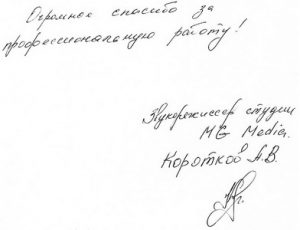 Огромное спасибо за
профессиональную работу!
Звукорежиссер студии
MG Media.
Коротков А.В.